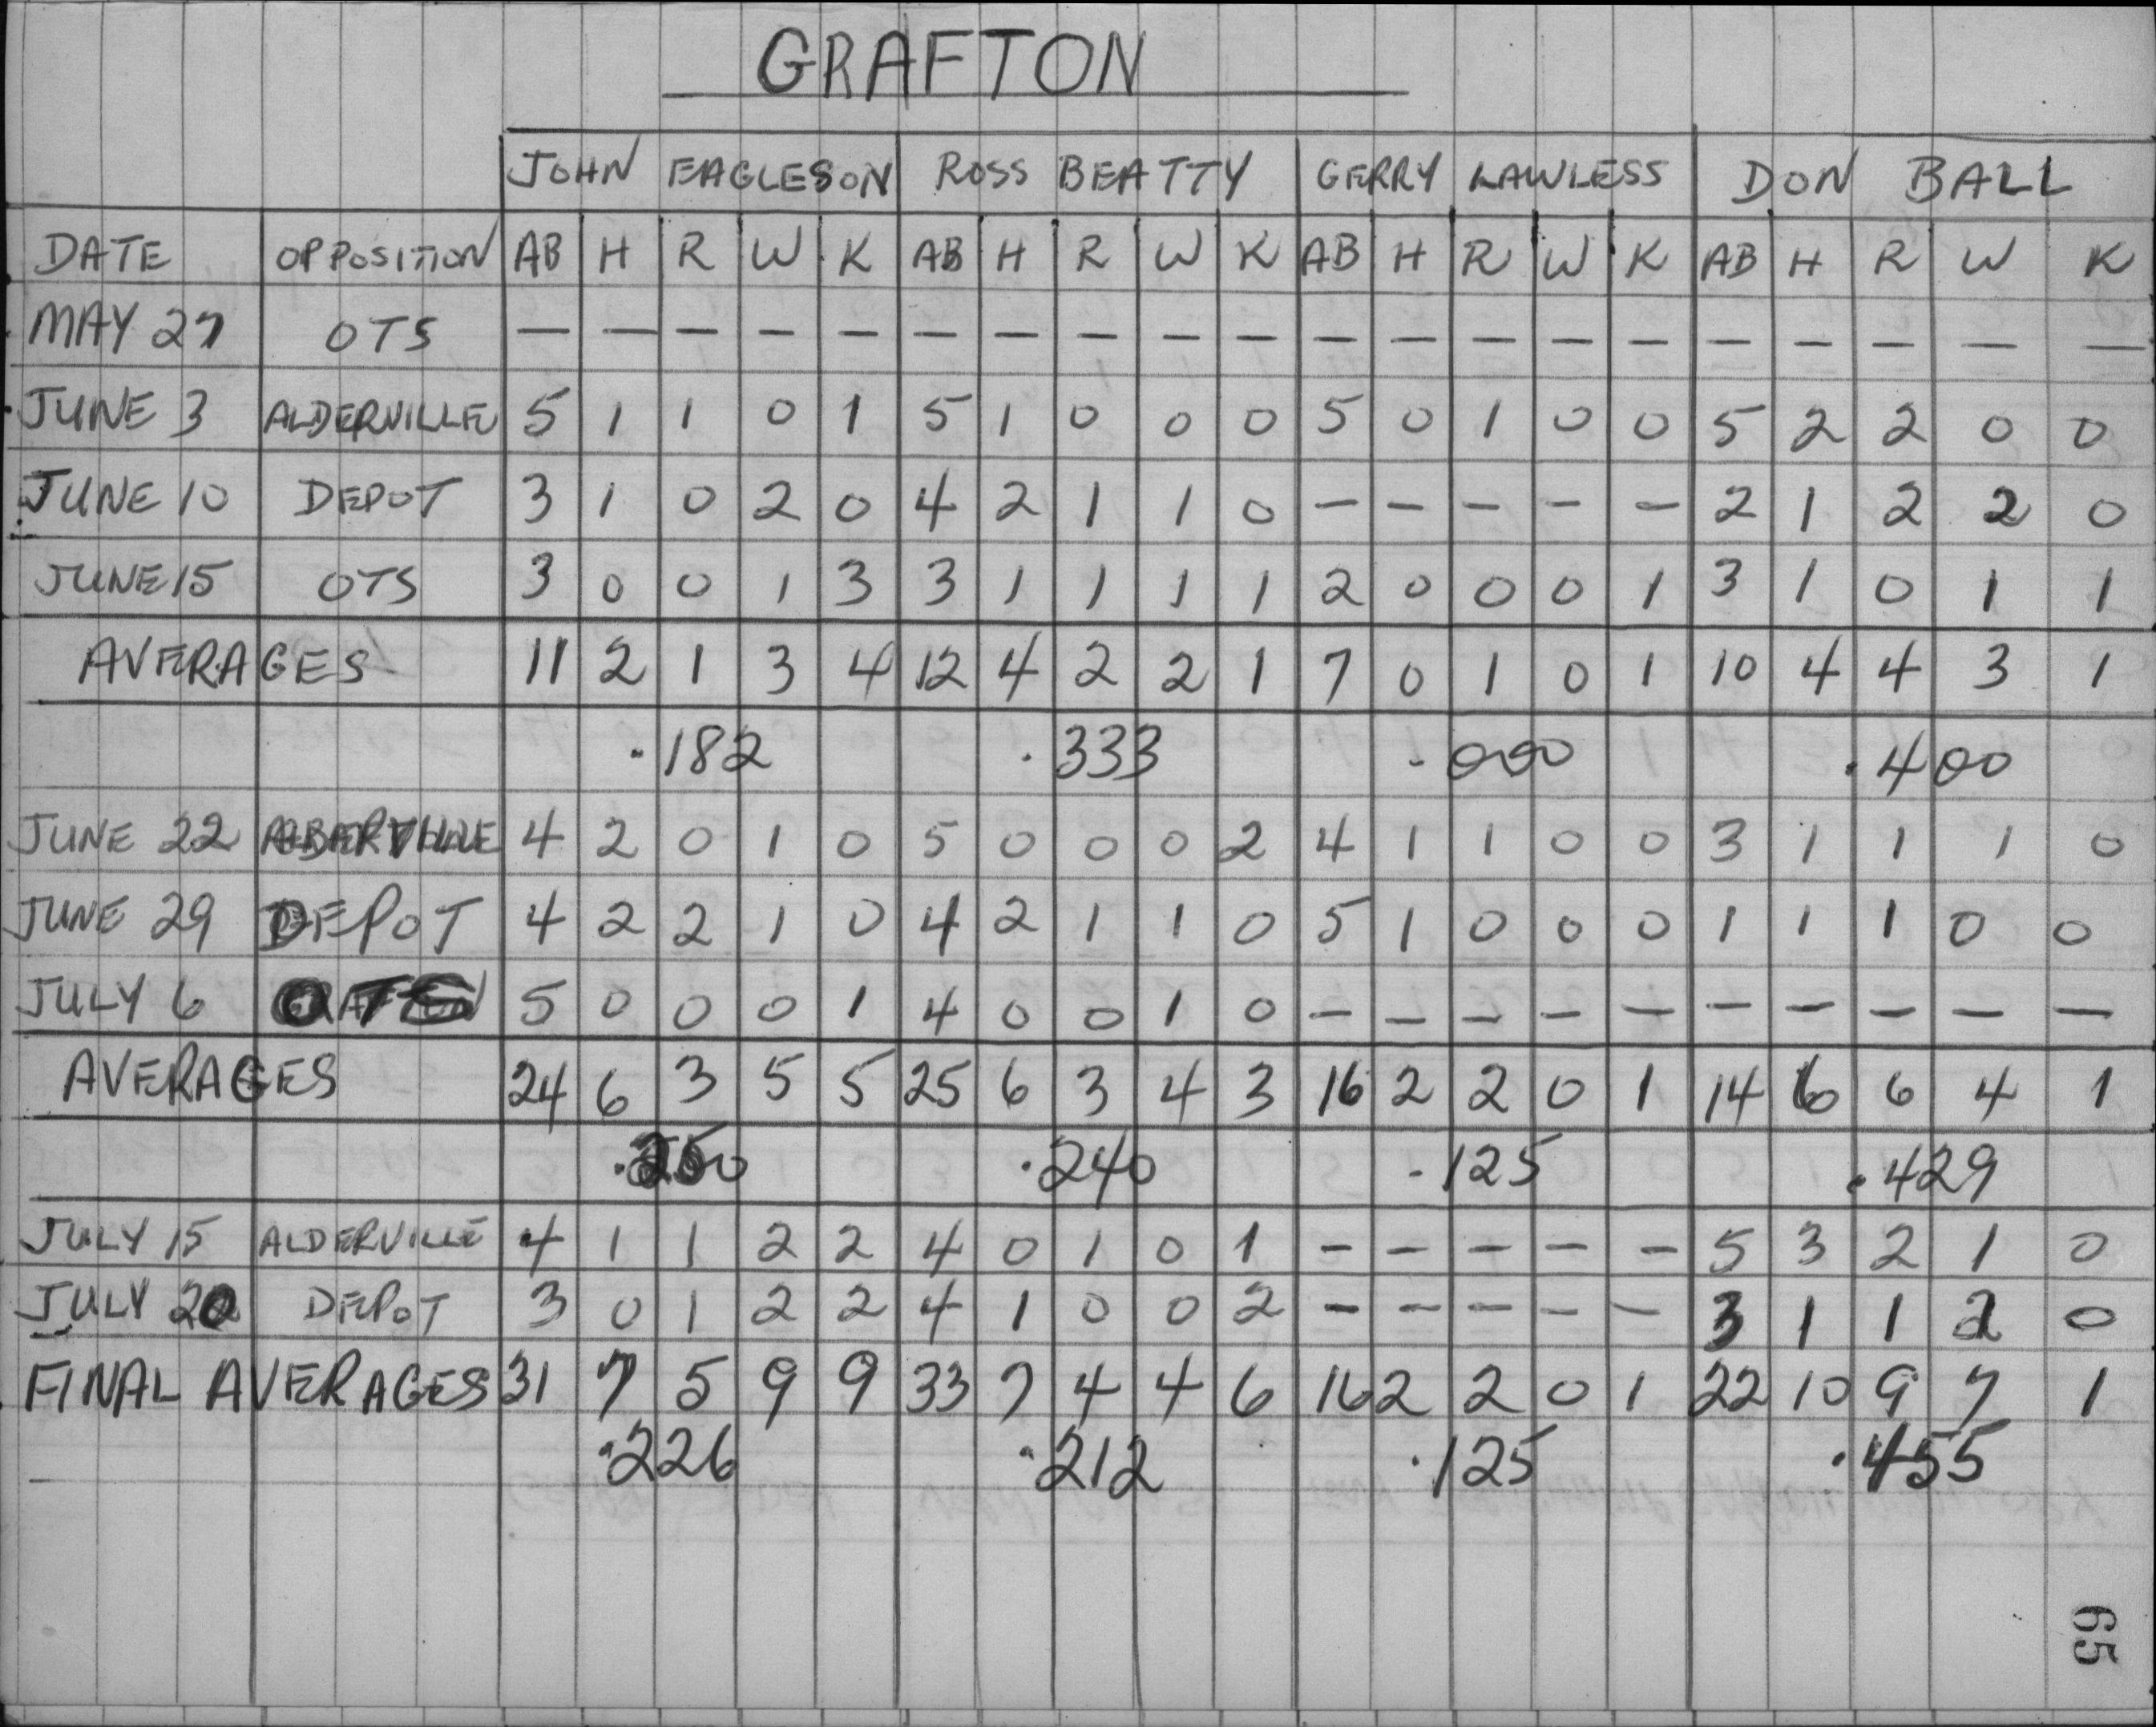 GRAFTON
JOHN EAGLESON ROSS BEATTY GERRY LAWLESS DON BALL
DATE OPPOSITION AB H R W K AB H R W K AB H R W K AB H R W K
MAY 27 OTS — — — — — — — — — — — — — — — — — — — —
JUNE 3 ALDERVILLE 5 1 1 0 1 5 1 0 0 0 5 0 1 0 0 5 2 2 0 0
JUNE 10 DEPOT 3 1 0 2 0 4 2 1 1 0 — — — — — 2 1 2 2 0
JUNE 15 OTS 3 0 0 1 3 3 1 1 1 1 2 0 0 0 1 3 1 0 1 1
AVERAGES 11 2 1 3 4 12 4 2 2 1 7 0 1 0 1 10 4 4 3 1
.182 .333 .000 .400
JUNE 22 4 2 0 1 0 5 0 0 0 2 4 1 1 0 0 3 1 1 1 0
JUNE 29 DEPOT 4 2 2 1 0 4 2 1 1 0 5 1 0 0 0 1 1 1 0 0
JULY 6 OTS 5 0 0 0 1 4 0 0 1 0 — — — — — — — — — —
AVERAGES 24 6 3 5 5 25 6 3 4 3 16 2 2 0 1 14 6 6 4 1
.250 .240 .125 .429
JULY 15 ALDERVILLE 4 1 1 2 2 4 0 1 0 1 — — — — — 5 3 2 1 0
JULY 20 DEPOT 3 0 1 2 2 4 1 0 0 2 — — — — — 3 1 1 2 0
FINAL AVERAGES 31 7 5 9 9 33 7 4 4 6 16 2 2 0 1 22 10 9 7 1
.226 .212 .125 .455
65